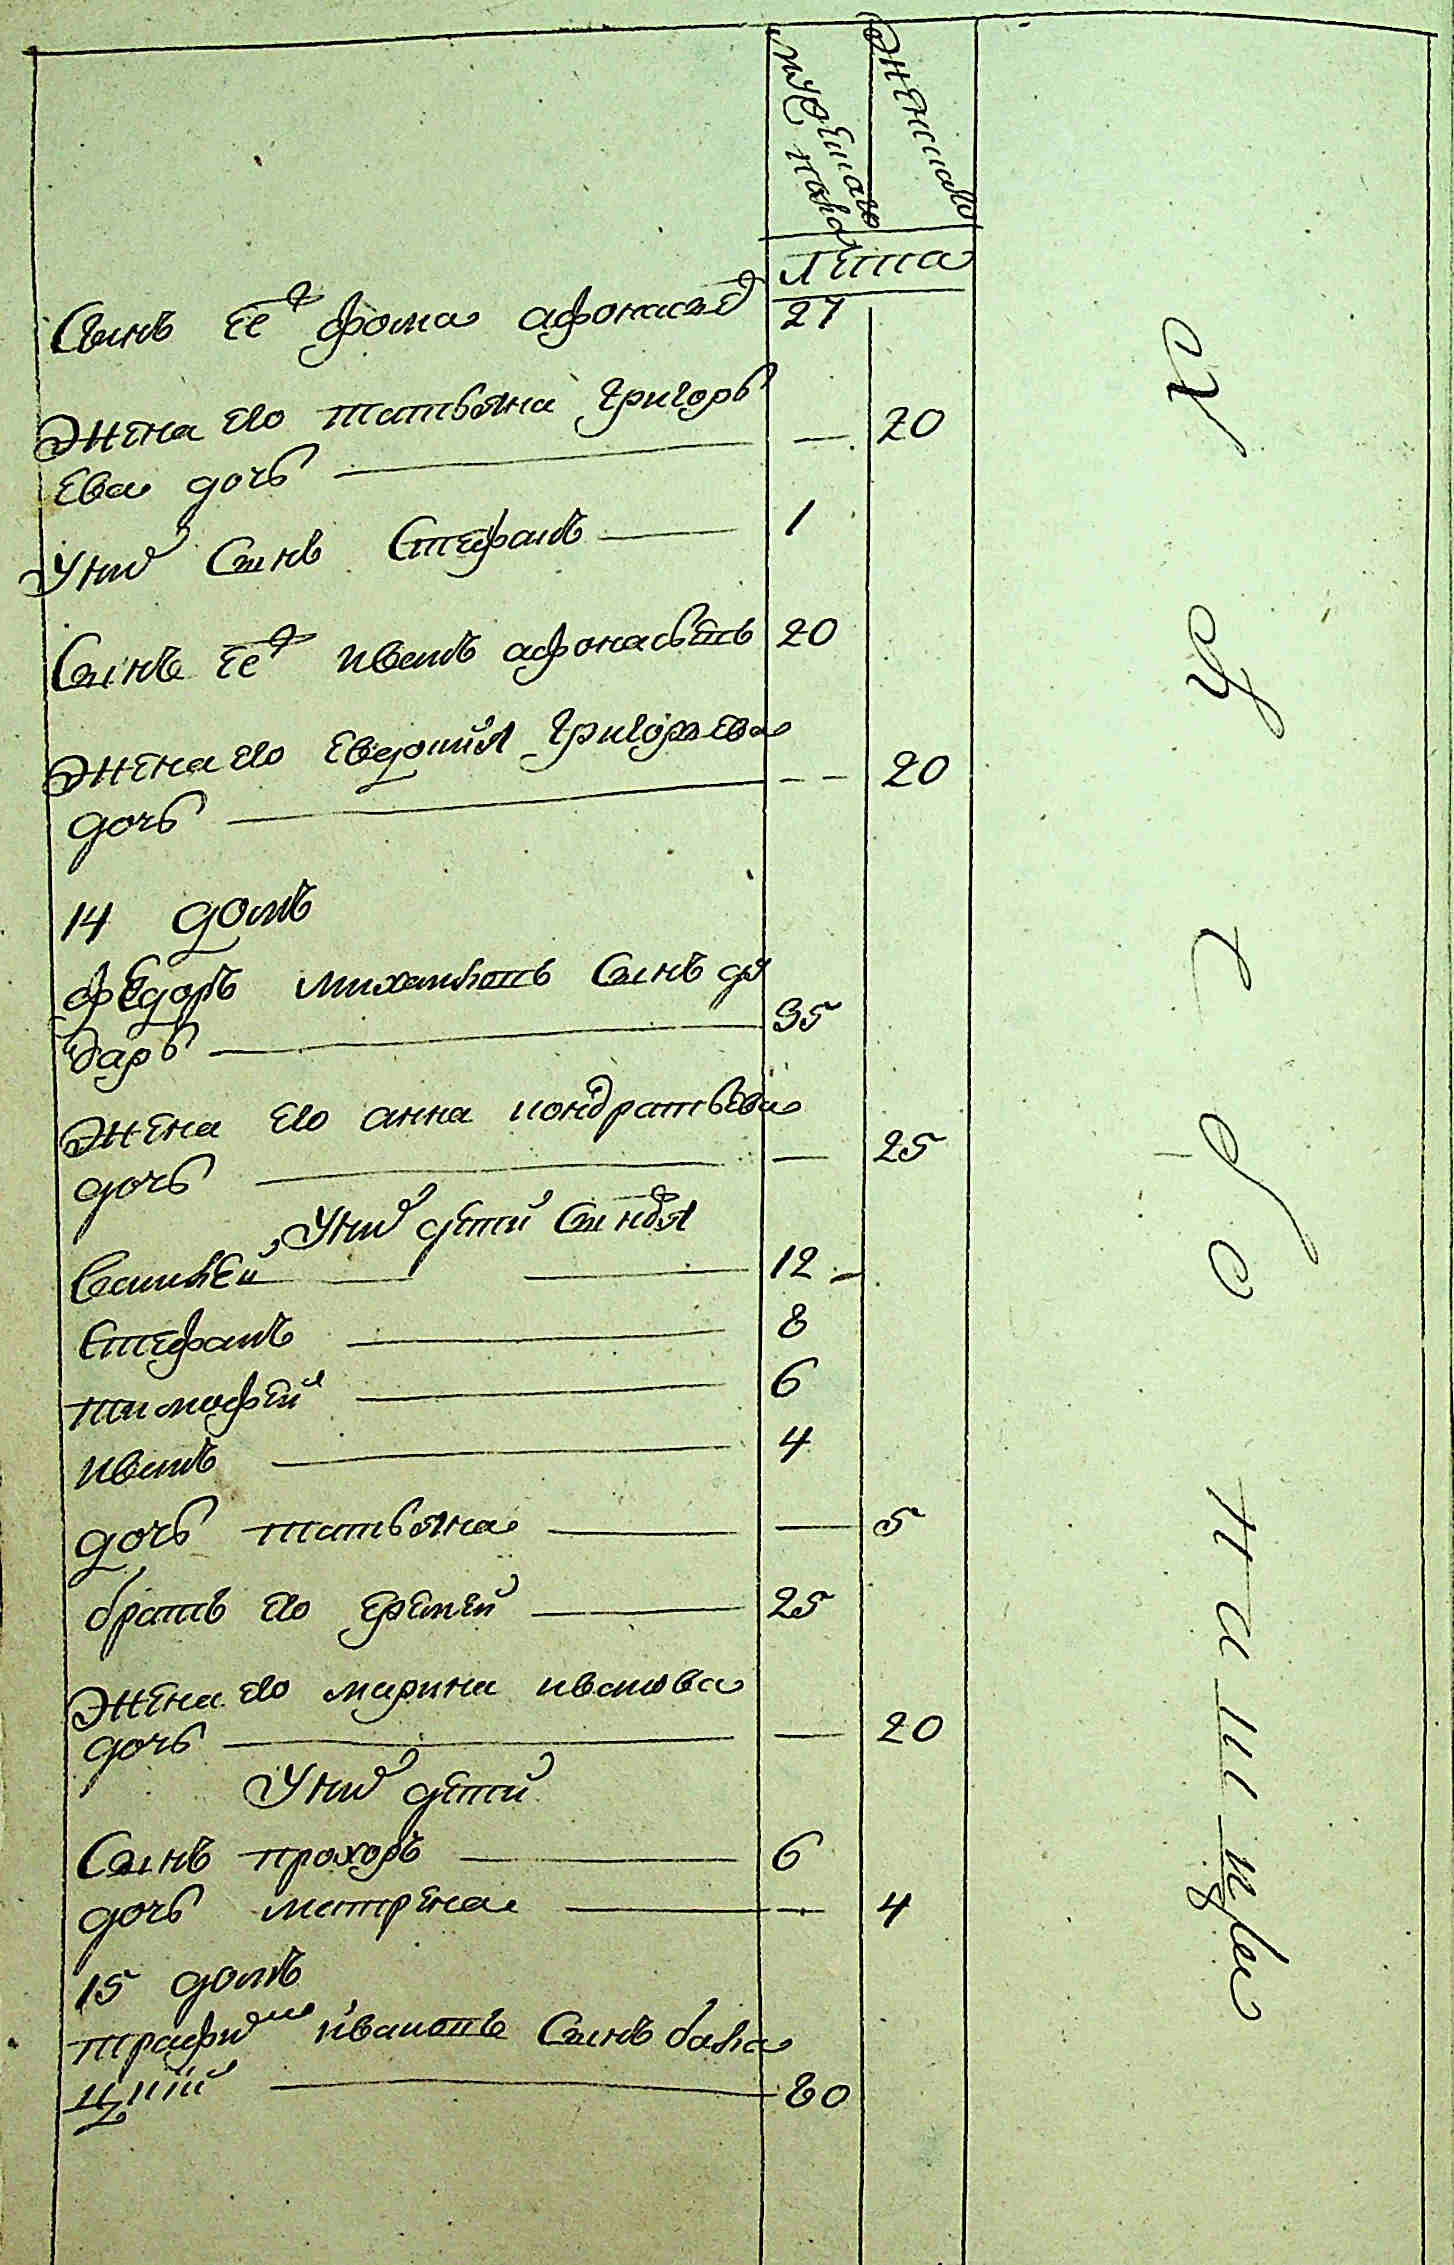 мужескаго пола
женскаго
Лета
Сынъ ее фома афонасьев 27
Жена его татьяна григорь
ева дочь — 20
У них Сынъ Стефанъ 1
Сынъ ее иванъ афонасьевъ 20
Жена его Евдокия григорьева
дочь — 20
14 домъ
федоръ михаиловъ Сынъ
35
Жена его анна кондратьева
дочь — 25
У них дети Сыновья
Василей 12
Стефанъ 8
тимофей 6
иванъ 4
дочь татьяна — 5
братъ его еремей 25
Жена его марина иванова
дочь — 20
У них дети
Сынъ прохоръ 6
дочь матрена — 4
15 домъ
трафим ивановъ Сынъ
80